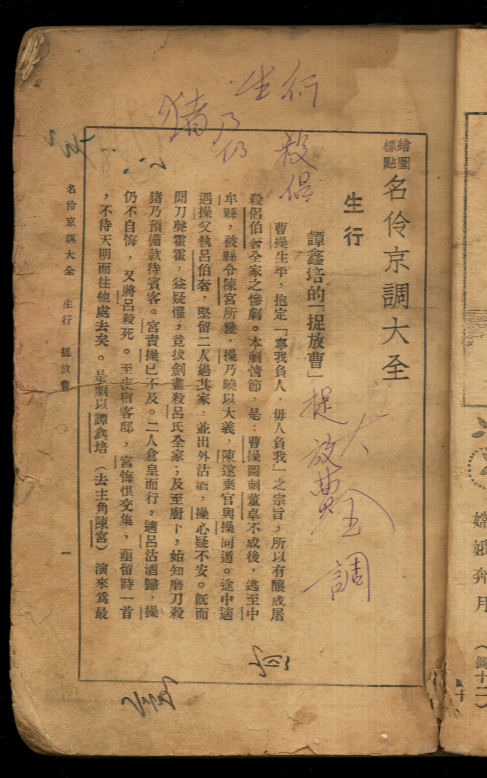 繪圖標點 名伶京調大全
生行
譚鑫培的「捉放曹」
曹操生平，抱定「寧我負人，毋人負我」之宗旨，所以有釀成屠
殺呂伯奢全家之慘劇。本劇情節，是：曹操圖刺董卓不成後，逃至中
牟縣，被縣令陳宮所獲，操乃曉以大義，陳遂棄官與操同遁。途中適
遇操父執呂伯奢，堅留二人過其家，並出外沽酒，操心疑不安。旣而
聞刀聲霍霍，益疑懼，竟拔劍盡殺呂氏全家；及至廚下，始知磨刀殺
豬乃預備款待賓客。宮責操已不及。二人倉皇而行，適呂沽酒歸，操
仍不自悔，又將呂殺死。至夜宿客邸，宮悔恨交集，乃留詩一首
，不待天明而往他處去矣。是劇以譚鑫培（去主角陳宮）演來爲最
名伶京調大全 生行 捉放曹 一
生行
豬乃仍
殺侶
捉放曹
大全
調
嫦娥奔月
（圖十二）